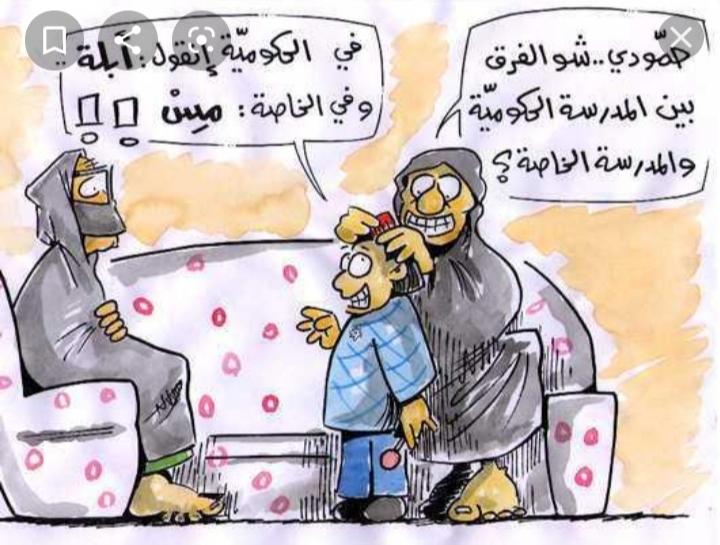 حمّودي..شو الفرق
بين المدرسة الحكوميّة
والمدرسة الخاصة؟
في الحكوميّة إنقول: أبلة..
وفي الخاصة: مِسْ !!